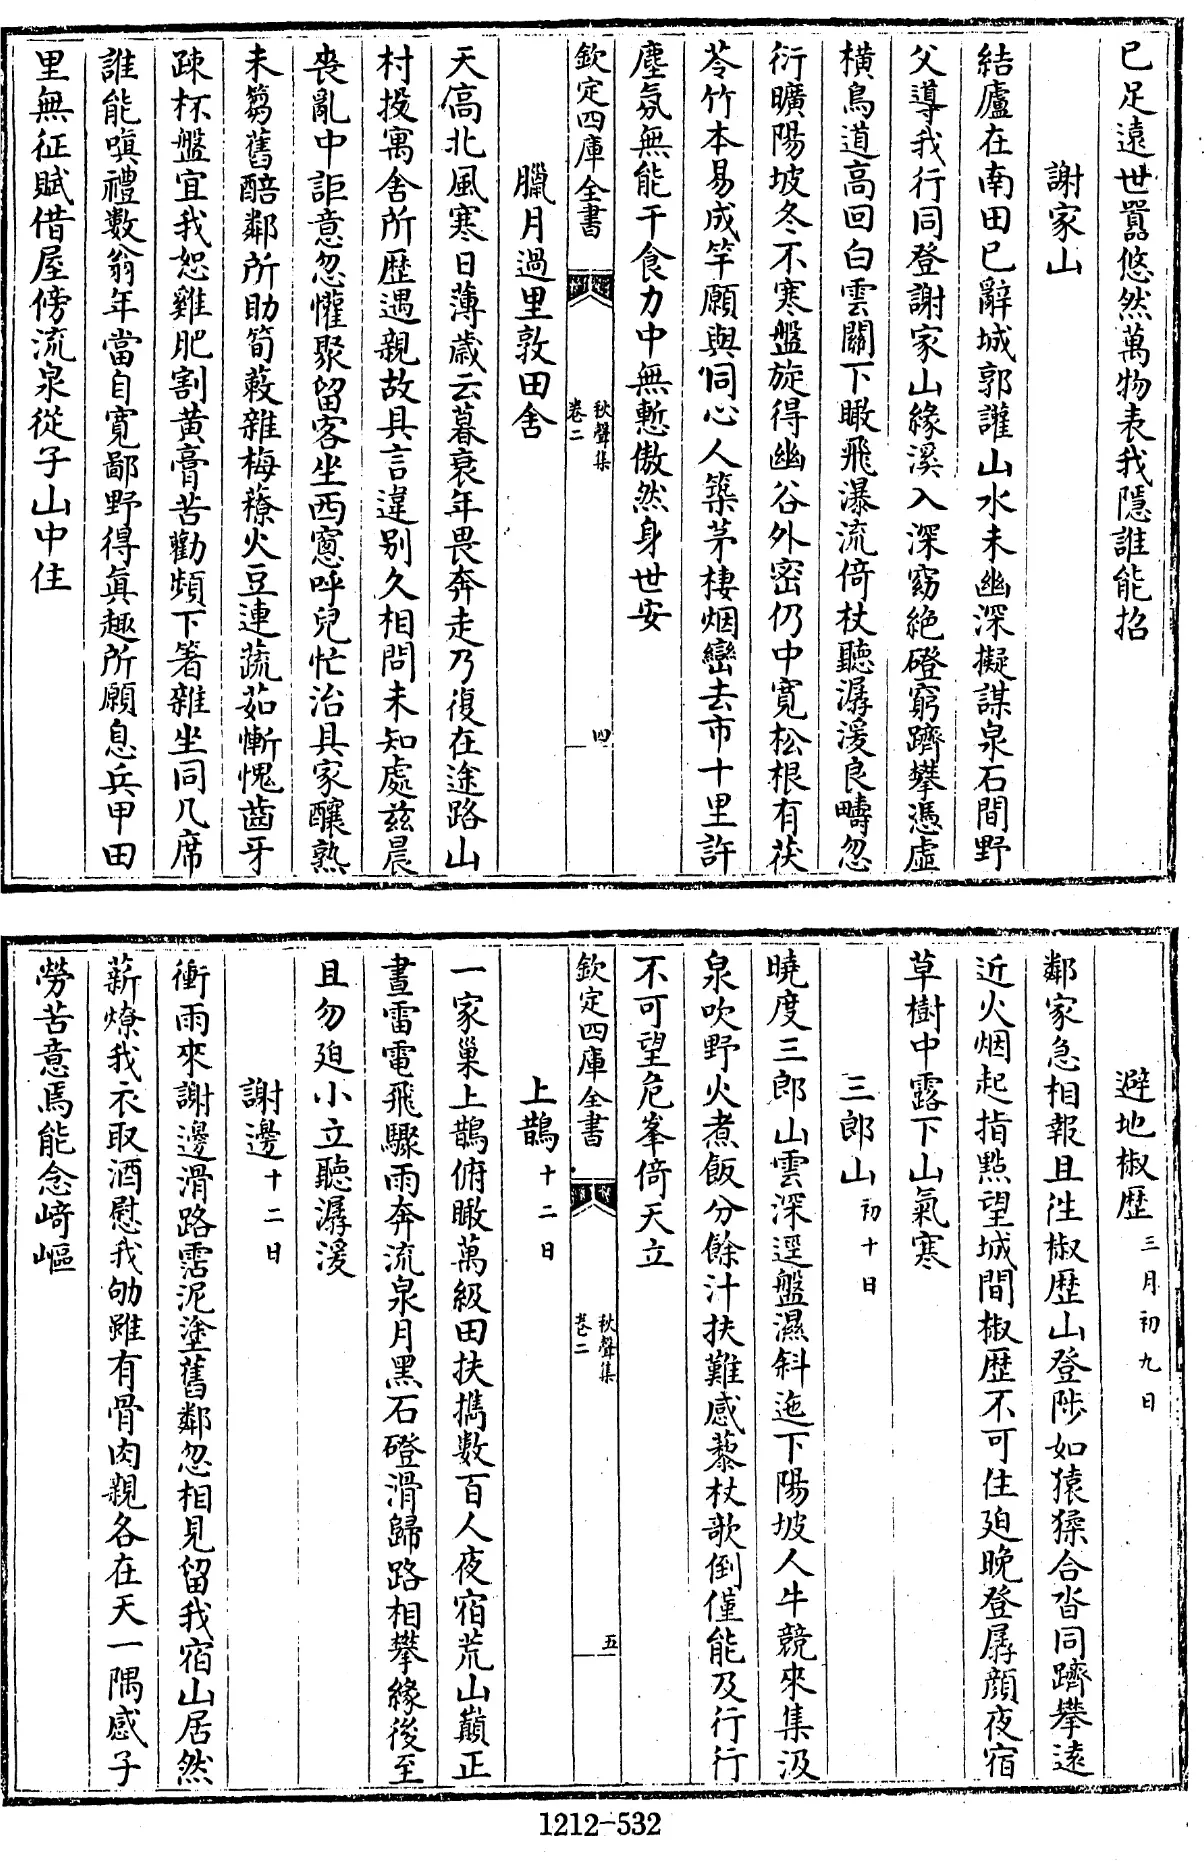 已足遠世囂悠然萬物表我隱誰能招
謝家山
結廬在南田已辭城郭讙山水未幽深擬謀泉石間野
父導我行同登謝家山緣溪入深窈絶磴窮躋攀憑虛
橫鳥道高回白雲關下瞰飛瀑流倚杖聽潺湲良疇忽
衍曠陽坡冬不寒盤旋得幽谷外密仍中寛松根有茯
苓竹本易成竿願與同心人築茅棲烟巒去市十里許
塵氛無能干食力中無慙傲然身世安
欽定四庫全書
秋聲集
卷二
四
臘月過里敦田舍
天高北風寒日薄歲云暮衰年畏奔走乃復在途路山
村投寓舍所歴遇親故具言違别久相問未知處兹晨
喪亂中詎意忽懽聚留客坐西窻呼兒忙治具家釀熟
未篘舊醅鄰所助筍蔌雜梅䕩火豆連蔬茹慚愧齒牙
疎杯盤宜我恕雞肥割黄膏苦勸頻下箸雜坐同几席
誰能嗔禮數翁年當自寛鄙野得真趣所願息兵甲田
里無征賦借屋傍流泉從子山中住
避地椒歴三月初九日
鄰家急相報且往椒歴山登陟如猿猱合沓同躋攀遠
近火烟起指點望城間椒歴不可住廹晚登孱顔夜宿
草樹中露下山氣寒
三郎山初十日
曉度三郎山雲深逕盤濕斜迤下陽坡人牛競來集汲
泉吹野火煮飯分餘汁扶難感藜杖歌倒僅能及行行
不可望危峯倚天立
欽定四庫全書
秋聲集
卷二
五
上鵲十二日
一家巢上鵲俯瞰萬級田扶擕數百人夜宿荒山巔正
晝雷電飛驟雨奔流泉月黑石磴滑歸路相攀緣後至
且勿廹小立聽潺湲
謝邊十二日
衝雨來謝邊滑路霑泥塗舊鄰忽相見留我宿山居然
薪燎我衣取酒慰我劬雖有骨肉親各在天一隅感子
勞苦意焉能念崎嶇
1212-532